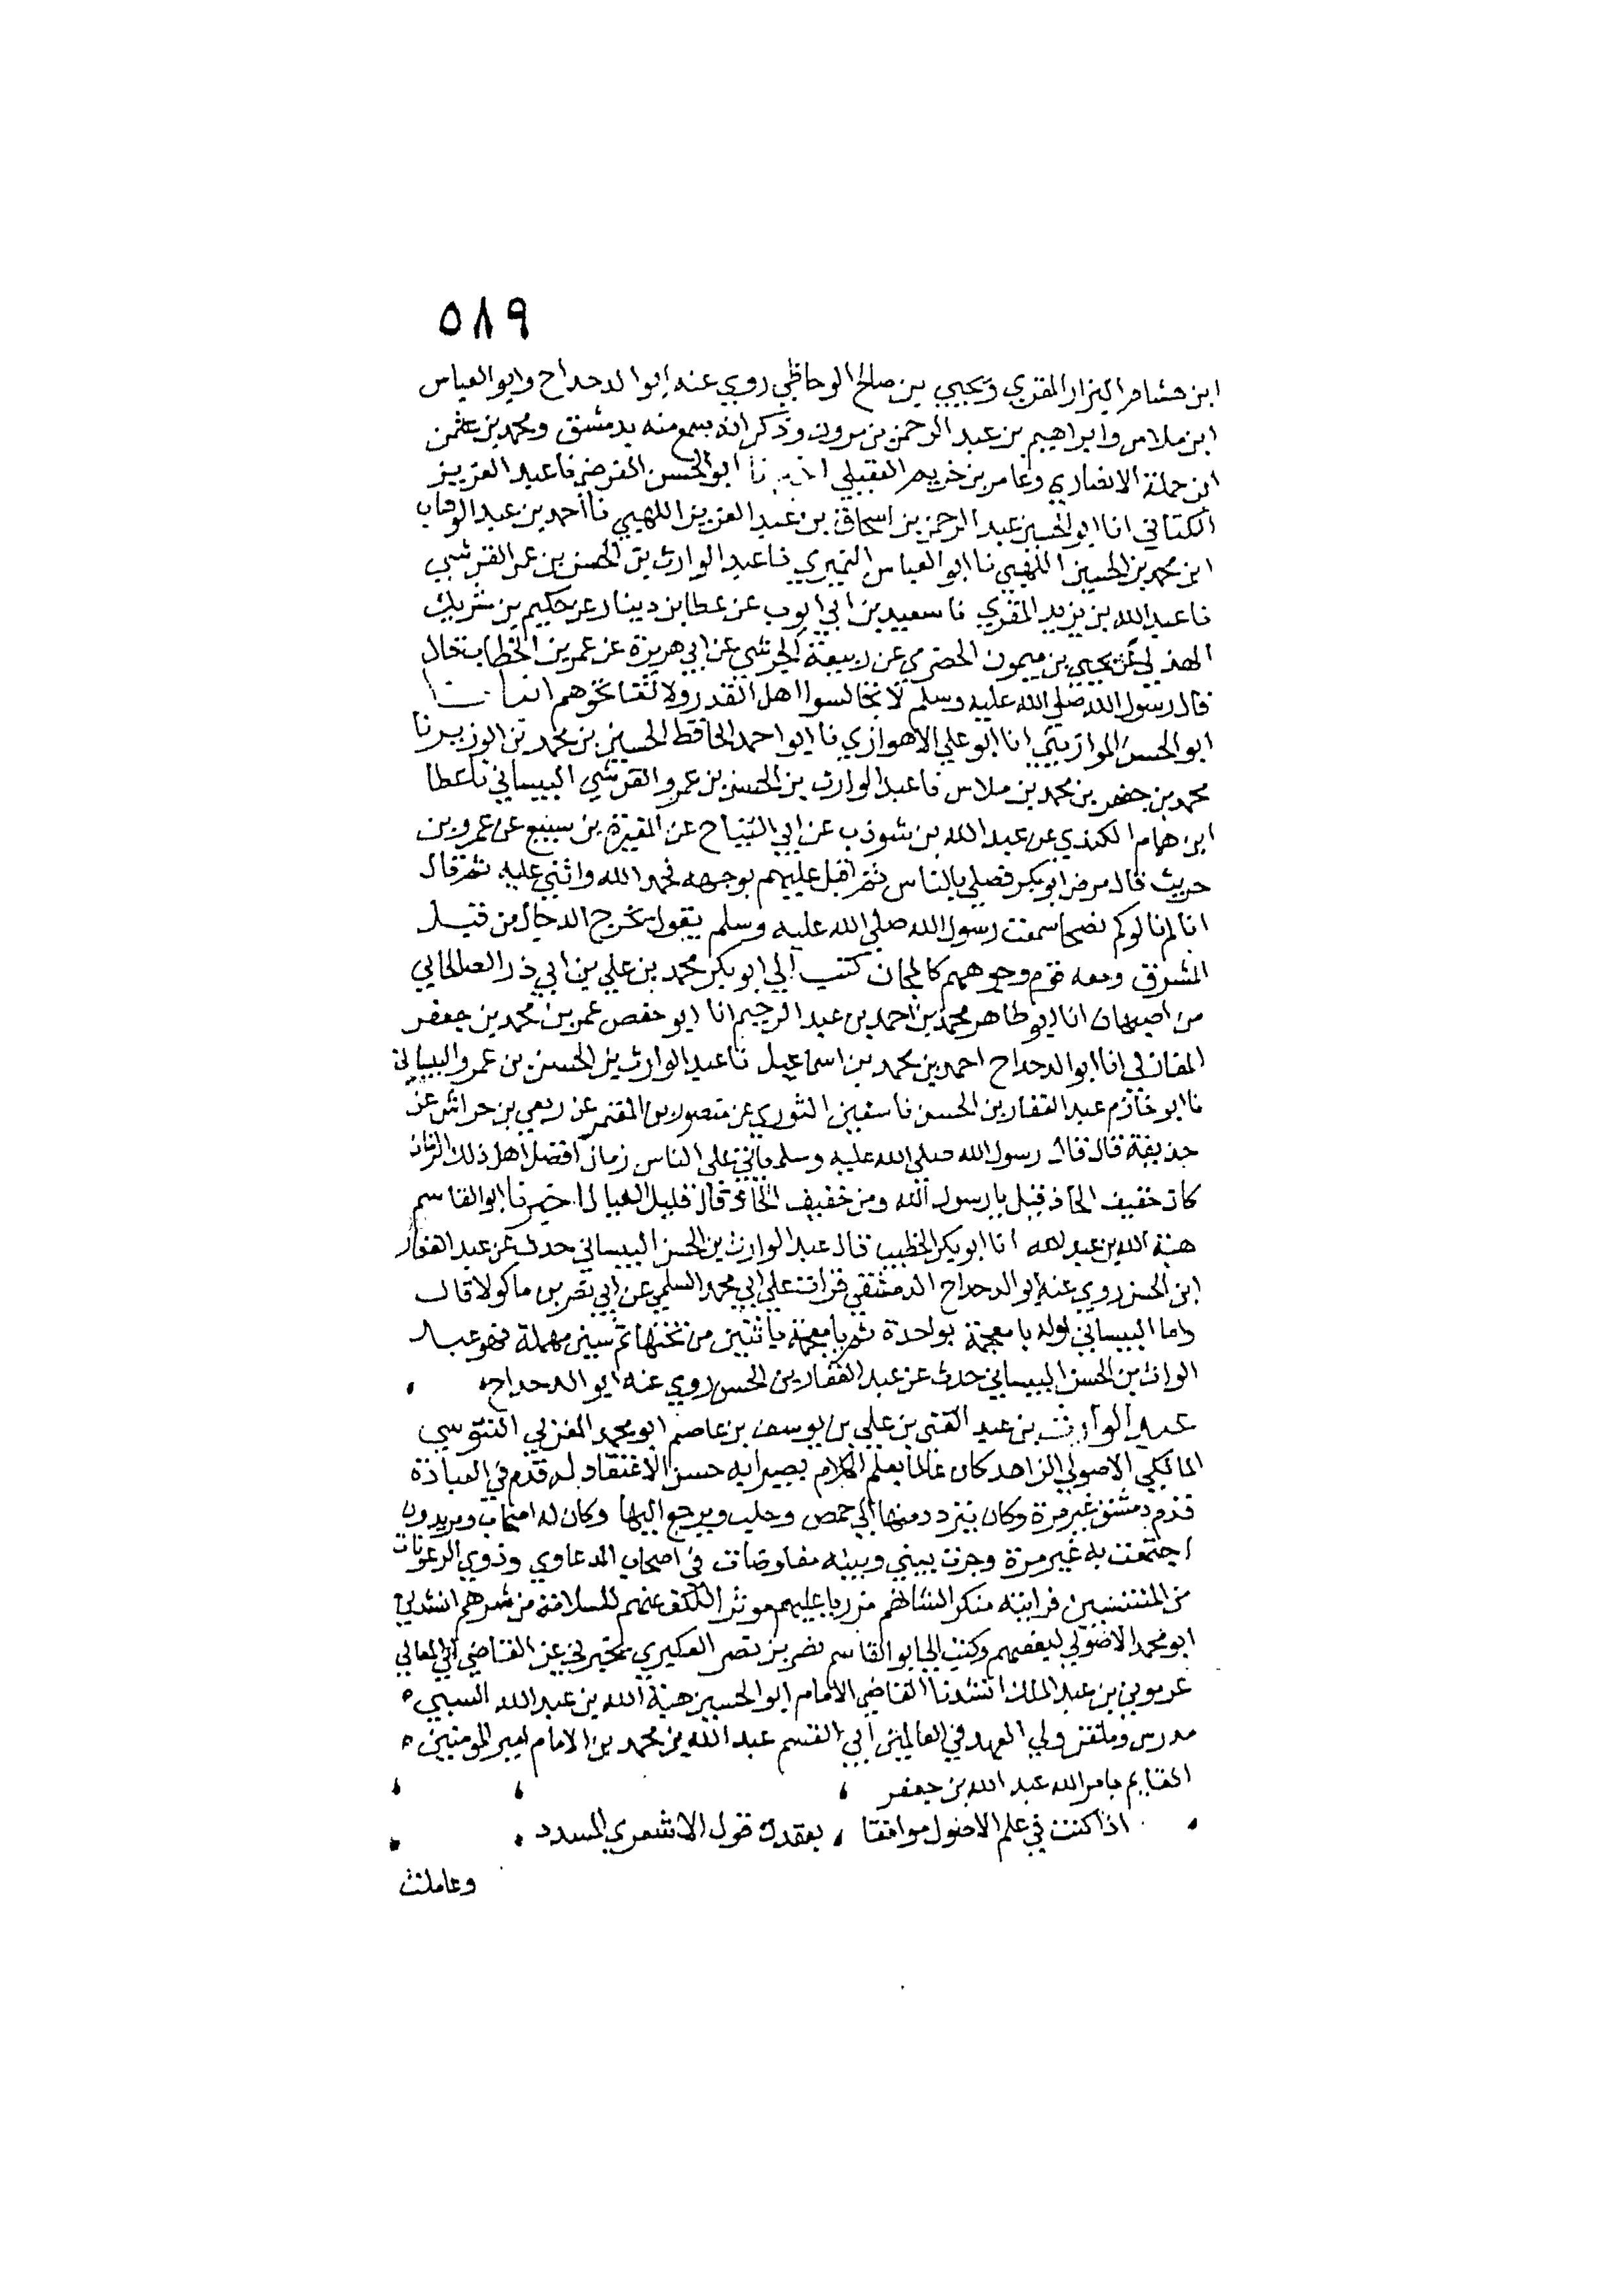 ٥٨٩
ابن هشام البزار المقري ويحيى بن صالح الوحاظي روي عنه ابو الدحداح وابو العباس
ابن ملاس وابراهيم بن عبد الرحمن بن مرون وذكر انه سمع منه بدمشق ومحمد بن عثمن
ابن حملة الانصاري وعامر بن خريم العقيلي ابو الحسن الفرضي نا عبد العزيز
الكتاني انا ابو الحسين عبد الرحمن بن اسحاق بن عبد العزيز اللهبي نا احمد بن عبد الوهاب
ابن محمد بن الحسين اللهبي نا ابو العباس النميري نا عبد الوارث بن الحسن بن عمر القرشي
نا عبد الله بن يزيد المقري نا سعيد بن ابي ايوب عن عطا بن دينار عن حكيم بن شريك
الهذلي عن يحيى بن ميمون الحضرمي عن ربيعة الجرشي عن ابي هريرة عن عمر بن الخطاب قال
قال رسول الله صلى الله عليه وسلم لا تجالسوا اهل القدر ولا تفاتحوهم
ابو الحسن الموازيني انا ابو علي الاهوازي نا ابو احمد الحافظ الحسين بن محمد بن الوزير نا
محمد بن جعفر بن محمد بن ملاس نا عبد الوارث بن الحسن بن عمرو القرشي البيساني نا عطا
ابن همام الكندي عن عبد الله بن شوذب عن ابي التياح عن المغيرة بن سبيع عن عمرو بن
حريث قال مرض ابو بكر فصلي بالناس ثم اقبل عليهم بوجهه فحمد الله واثني عليه ثم قال
انا لم نالوكم نصحا سمعت رسول الله صلي الله عليه وسلم يقول يخرج الدجال من قبل
المشرق ومعه قوم وجوههم كالمجان كتب الي ابو بكر محمد بن علي بن ابي ذر الصالحاني
من اصبهان انا ابو طاهر محمد بن احمد بن عبد الرحيم انا ابو حفص عمر بن محمد بن جعفر
المغازلي انا ابو الدحداح احمد بن محمد بن اسماعيل نا عبد الوارث بن الحسن بن عمرو البيساني
نا ابو خازم عبد الغفار بن الحسن نا سفين الثوري عن منصور بن المعتمر عن ربعي بن حراش عن
حذيفة قال قال رسول الله صلي الله عليه وسلم ياتي علي الناس زمان افضل اهل ذلك الزمان
كل خفيف الحاذ قيل يا رسول الله ومن خفيف الحاذ قال قليل العيال اخبرنا ابو القاسم
هبة الله بن عبد الله انا ابو بكر الخطيب قال عبد الوارث بن الحسن البيساني حدث عن عبد الغفار
ابن الحسن روي عنه ابو الدحداح الدمشقي قرات علي ابي محمد السلمي عن ابي نصر بن ماكولا قال
واما البيساني اوله با معجمة بواحدة ثم يا معجمة باثنتين من تحتها ثم سين مهملة فهو عبد
الوارث بن الحسن البيساني حدث عن عبد الغفار بن الحسن روي عنه ابو الدحداح
عبد الوارث بن عبد الغني بن علي بن يوسف بن عاصم ابو محمد المغربي التونسي
المالكي الاصولي الزاهد كان عالما بعلم الكلام بصيرا به حسن الاعتقاد له قدم في العبادة
قدم دمشق غير مرة وكان يتردد منها الي حمص وحلب ويرجع اليها وكان له اصحاب ومريدون
اجتمعت به غير مرة وجرت بيني وبينه مفاوضات في اصحاب الدعاوي وذوي الرعونات
من المنتسبين فرايته منكرا لشانهم مزريا عليهم موثر الكف عنهم للسلامة من شرهم انشدني
ابو محمد الاصولي لبعضهم وكتب الي ابو القاسم نصر بن نصر العكبري يخبرني عن القاضي ابي المعالي
عزيزي بن عبد الملك انشدنا القاضي الامام ابو الحسين هبة الله بن عبد الله السيبي
مدرس وملقن ولي العهد في العالمين ابي القسم عبد الله بن محمد بن الامام امير المومنين
القايم بامر الله عبد الله بن جعفر
اذا كنت في علم الاصول موافقا ، بعقدك قول الاشعري المسدد
وعاملت